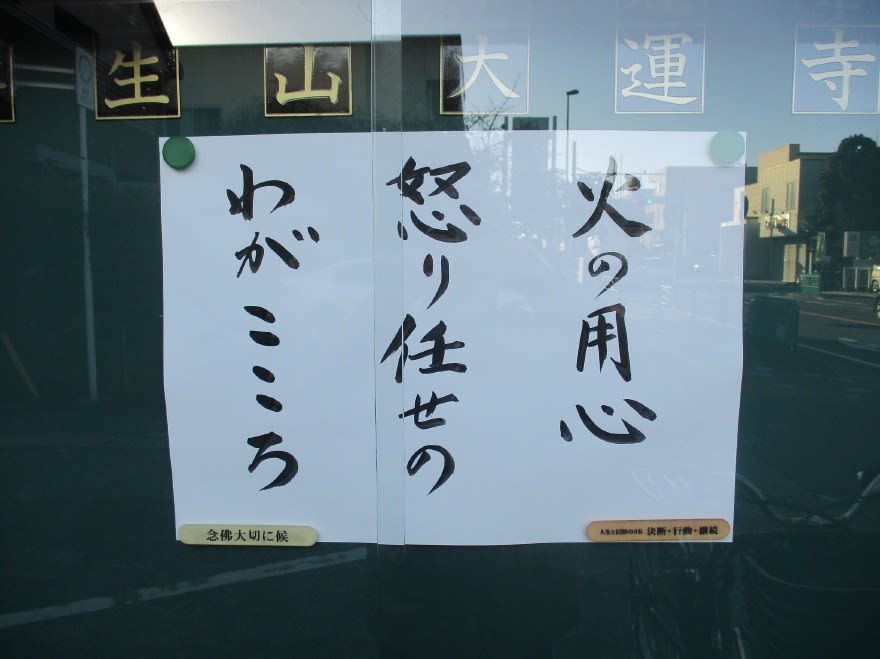 生山 大運寺
火の用心
怒り任せの
わがこころ
念佛大切に候
人生と信仰の3K 決断・行動・継続